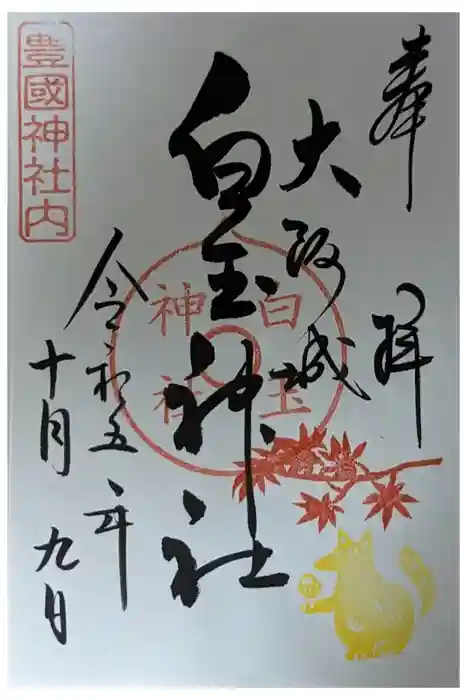 奉拝
大阪城
白玉神社
令和五年
十月九日
豊國神社内
白玉
神社